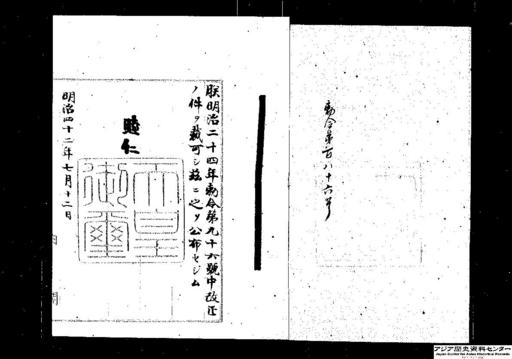 勅令第百八十六号
朕明治二十四年勅令第九十六號中改正
ノ件ヲ裁可シ茲ニ之ヲ公布セシム
睦仁
天皇
御璽
明治四十二年七月十二日
アジア歴史資料センター
Japan Center for Asian Historical Records